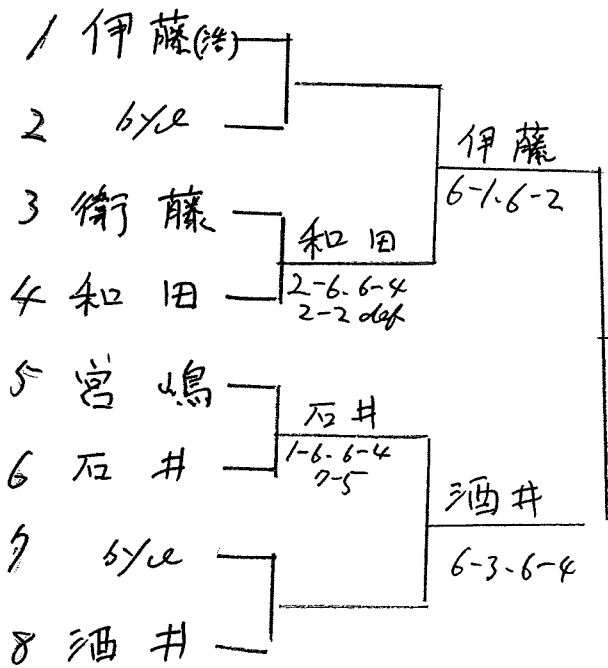 1 伊藤(浩)
2 bye
3 衛藤
4 和田
5 宮嶋
6 石井
7 bye
8 酒井
和田
2-6. 6-4
2-2 def
石井
1-6. 6-4
7-5
伊藤
6-1. 6-2
酒井
6-3. 6-4